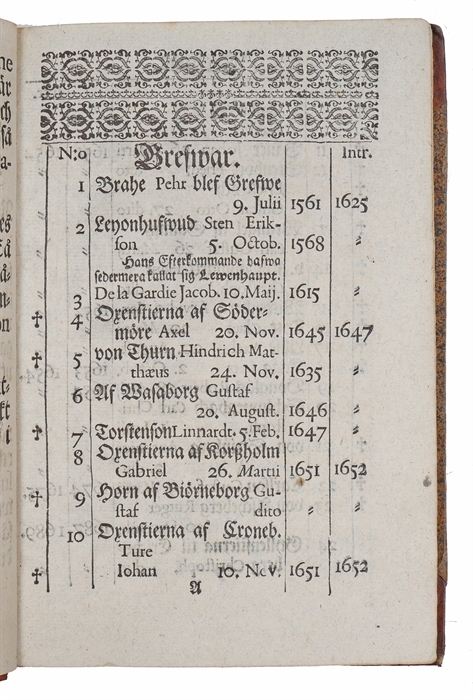 N:o Grefwar. Intr.
1 Brahe Pehr blef Grefwe
9. Julii 1561 1625
2 Leyonhufwud Sten Erik-
son 5. Octob. 1568 〃
Hans Efterkommande hafwa
sedermera kallat sig Lewenhaupt.
3 De la Gardie Jacob. 10. Maij. 1615 〃
✝ 4 Oxenstierna af Söder-
möre Axel 20. Nov. 1645 1647
✝ 5 von Thurn Hindrich Mat-
thæus 24. Nov. 1635 〃
6 Af Wasaborg Gustaf
20. August. 1646 〃
✝ 7 Torstenson Linnardt. 5. Feb. 1647 〃
8 Oxenstierna af Korßholm
Gabriel 26. Martii 1651 1652
✝ 9 Horn af Biörneborg Gu-
staf dito 〃 〃
10 Oxenstierna af Croneb.
Ture
✝ Iohan 10. Nov. 1651 1652
A